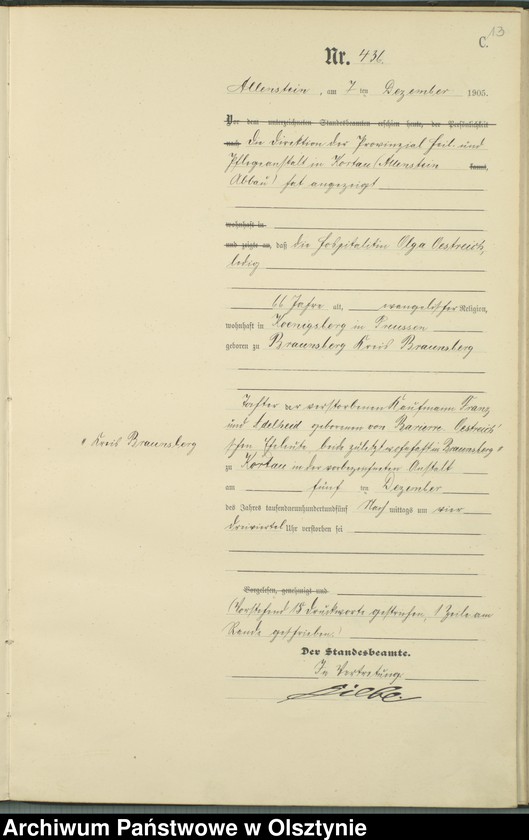 13
C.
Nr. 436.
Allenstein, am 7 ten Dezember 1905.
Vor dem unterzeichneten Standesbeamten erschien heute, der Persönlichkeit
nach die Direktion der Provinzial Heil- und
Pflegeanstalt in Kortau (Allenstein kannt,
Abbau) hat angezeigt
wohnhaft in
und zeigte an, daß die Hospitalitin Olga Oestreich,
ledig
66 Jahre alt, evangelischer Religion,
wohnhaft in Koenigsberg in Preussen
geboren zu Braunsberg Kreis Braunsberg
Tochter der verstorbenen Kaufmann Franz
und Adelheid geborenen von Oestreich'
schen Eheleute, beide zuletzt wohnhaft in Braunsberg "
" Kreis Braunsberg
zu Kortau in der vorbezeichneten Anstalt
am fünf ten Dezember
des Jahres tausendneunhundertundfünf Nach mittags um vier
dreiviertel Uhr verstorben sei
Vorgelesen, genehmigt und
(Vorstehend 18 Druckworte gestrichen, 1 Zeile am
Rande geschrieben.)
Der Standesbeamte.
In Vertretung.
Archiwum Państwowe w Olsztynie